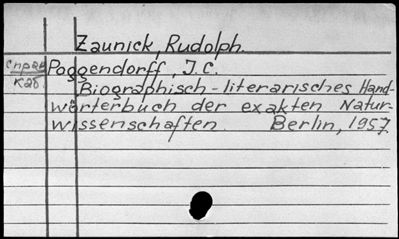 Zaunick, Rudolph.
Справ. Poggendorff, J.C.
каб. Biographisch-literarisches Hand-
wörterbuch der exakten Natur-
wissenschaften. Berlin, 1957.